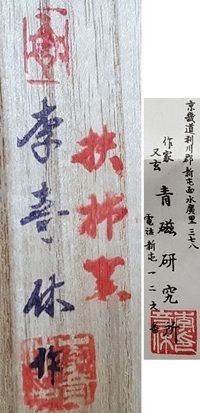 扶
李喜休作
京畿道利川郡新屯面水廣里三七八
作家
又玄
青磁研究所
電話新屯一二之番